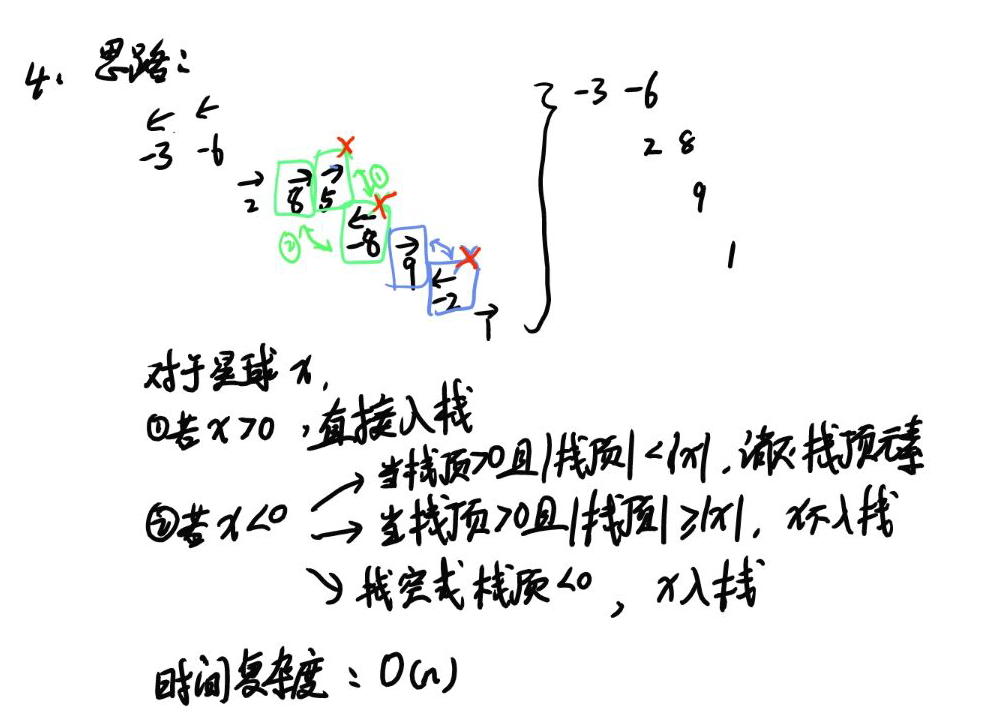 4. 思路:
← ←
-3 -6
→ 2 → 8 → 5 ①
② ← -8
→ 9
← -2
→ 1
-3 -6
2 8
9
1
对于星球 x,
①若 x>0,直接入栈
②若 x<0 → 当栈顶>0且|栈顶|<|x|,消灭栈顶元素
→ 当栈顶>0且|栈顶|≥|x|,x不入栈
↘ 栈空或栈顶<0,x入栈
时间复杂度:O(n)